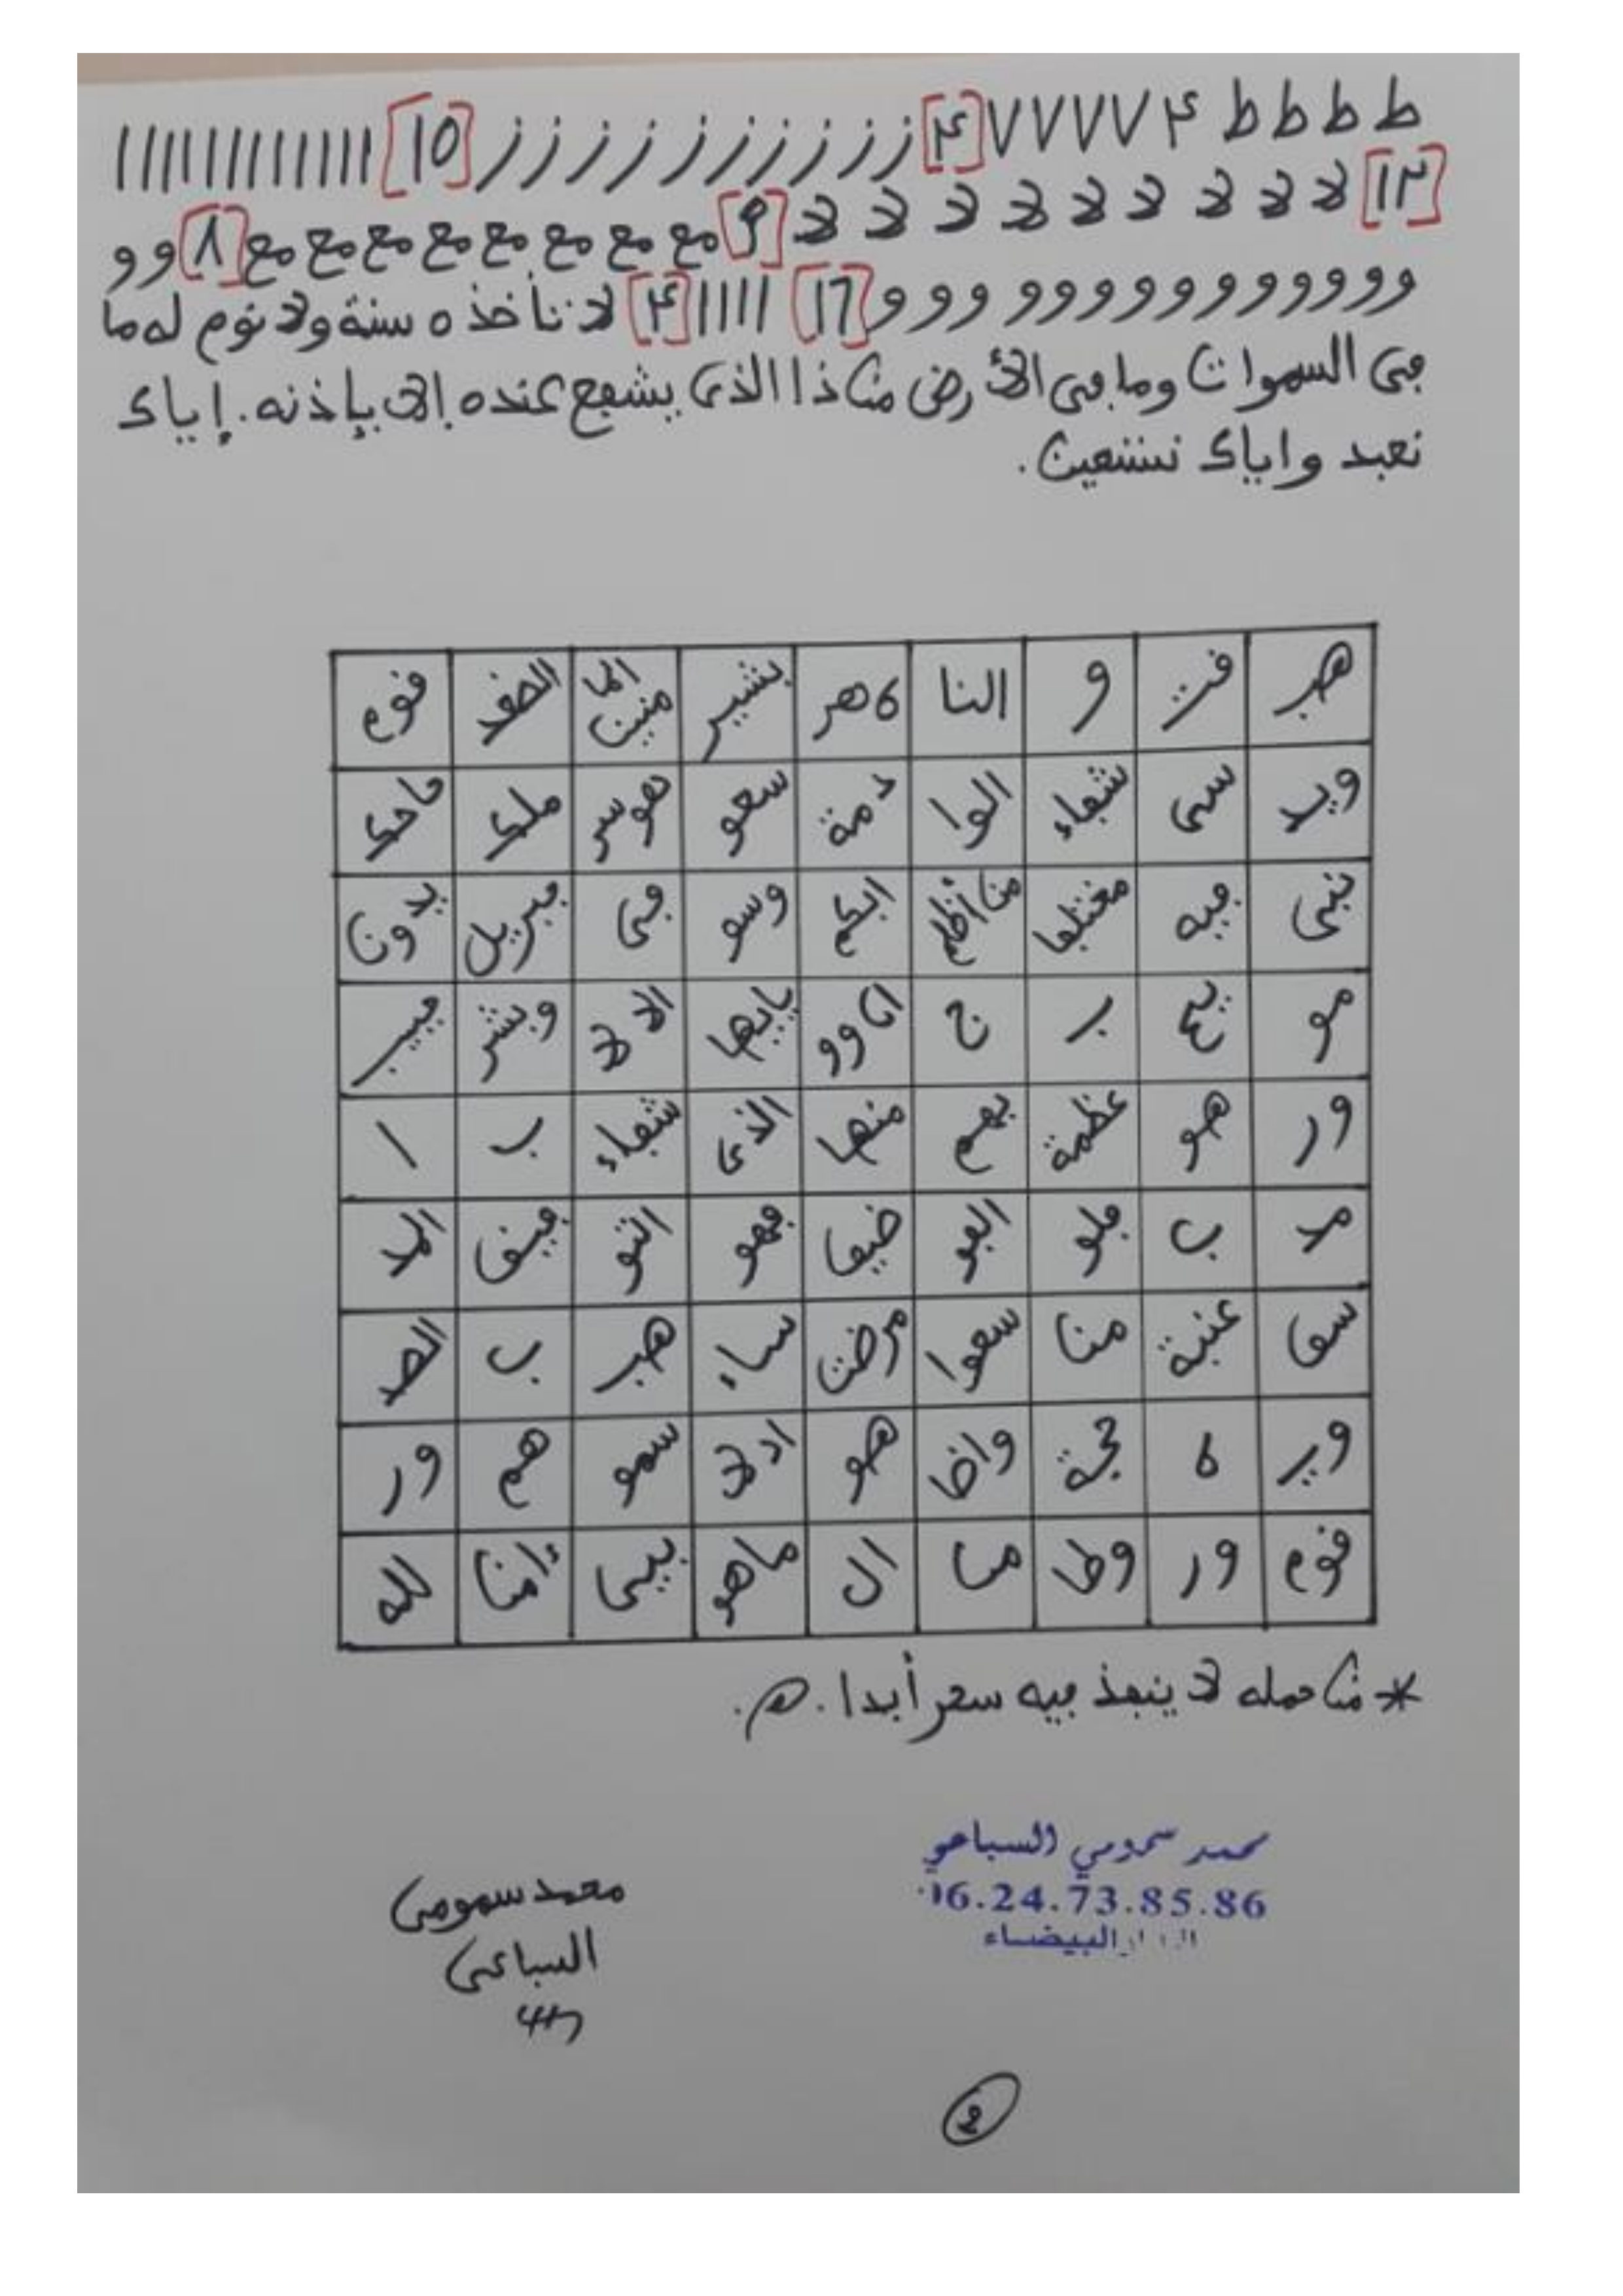 ط ط ط ط ۴ ٧٧٧٧ [۴] ز ز ز ز ز ز ز ز ز ز [10] ااااااااااااا
[١٢] لا لا لا لا لا لا لا لا لا [9] مع مع مع مع مع مع مع مع [٨] و و
و و و و و و و و و و و و و [17] اااا [۴] لا تأخذه سنة ولا نوم له ما
في السموات وما في الأرض من ذا الذي يشفع عنده إلا بإذنه. إياك
نعبد واياك نستعين.
هب فت و النا 6هر بشير الما منين الصفد فوم
ويد سى شفاء الوا دمة سعو هوسر ملك
نبى فيه مغتلها من أظلم ابكم وسو في جبريل يدون
مو يع ب ج انا وو يايها الا لا وبشر
ور هو عظمة بهم منها الذى شفاء ب ا
مد ب ملو العو ضيعا فهو التو فينف المد
سعا عنبة منا سعوا مرضت ساء هب ب الصد
وبر 6 حجة واضا هو اد لا سمو هم ور
فوم ور وطا من ال ماهو بيى ءامنا لله
* من حمله لا ينفذ فيه سحر أبدا. اهـ.
محمد سمومي السباعي
06.24.73.85.86
الدار البيضاء
محمد سمومي
السباعي
2